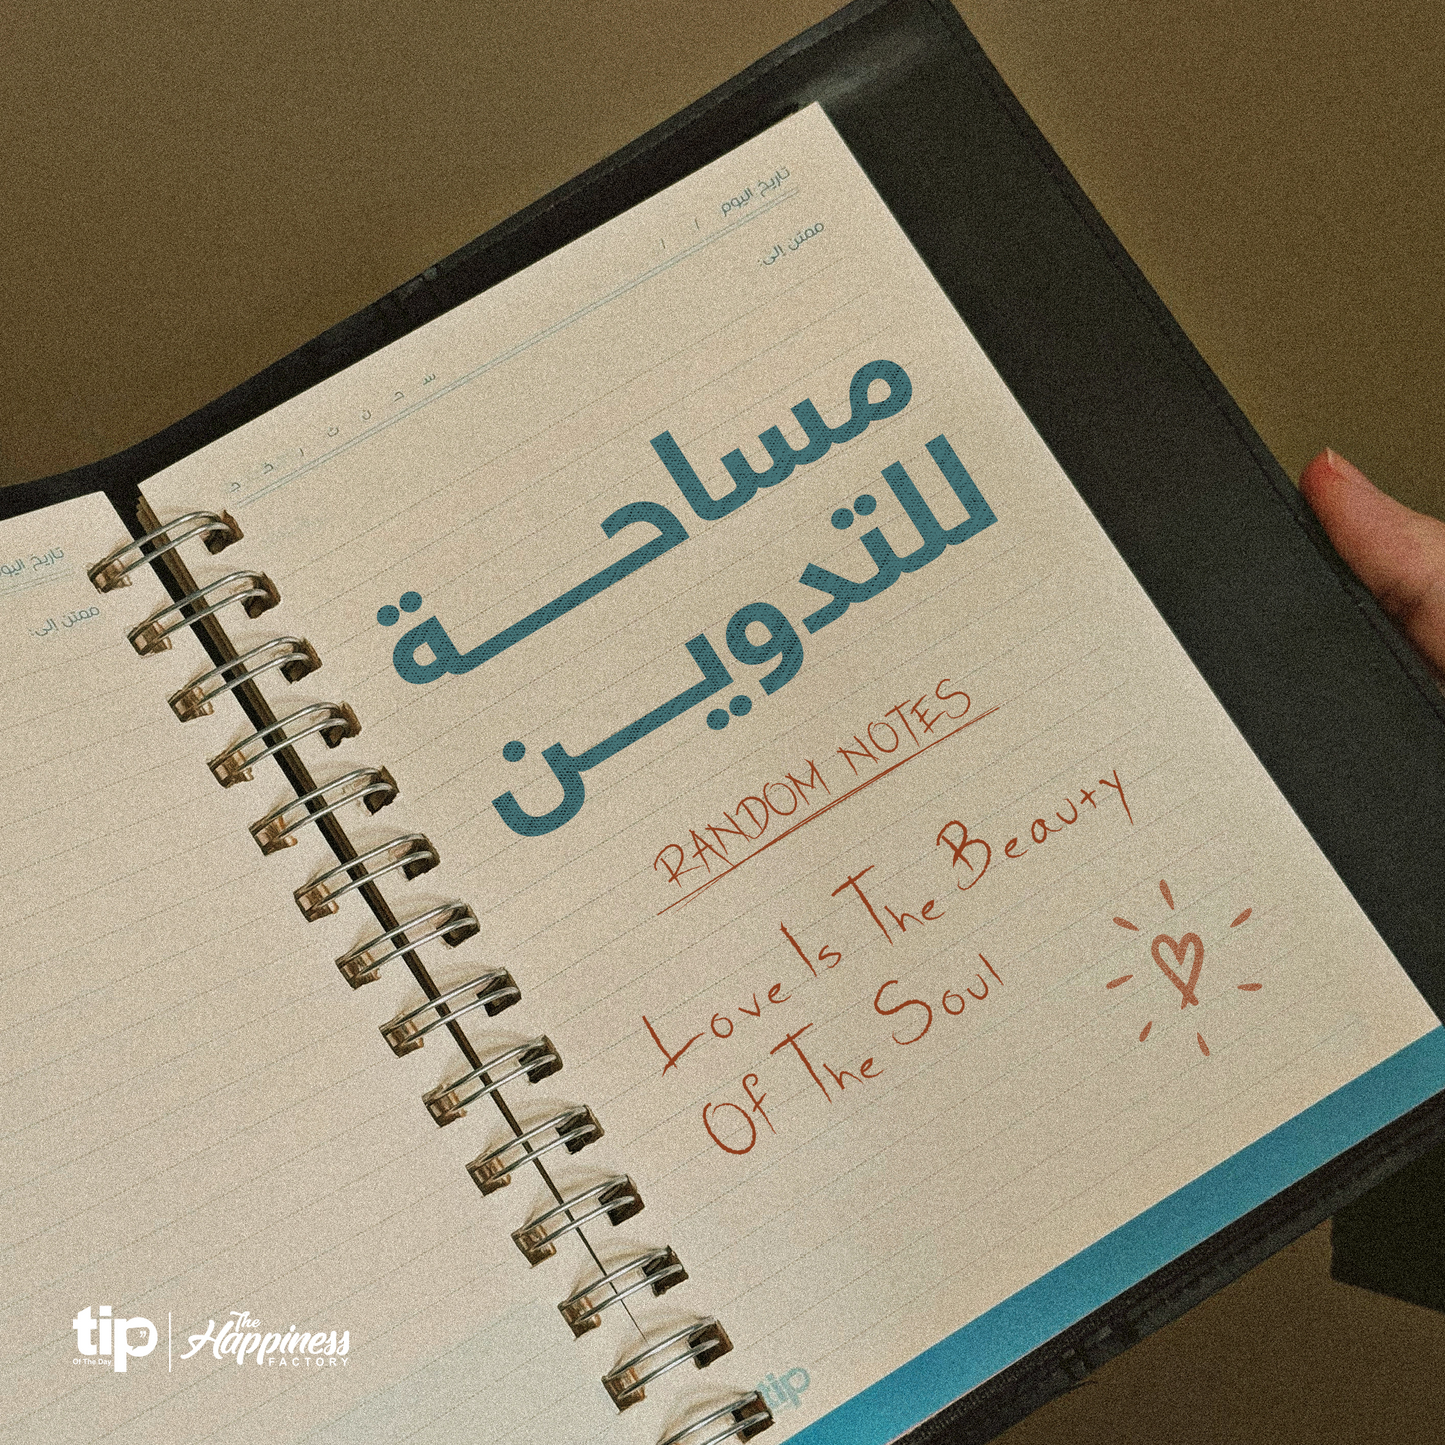 تاريخ اليوم / /
س ح ن ث ر خ ج
ممتن إلى:
مساحـــة
للتدويـــن
RANDOM NOTES
Love Is The Beauty
Of The Soul
ممتن إلى:
tip
tip
Of The Day
The
Happiness
FACTORY